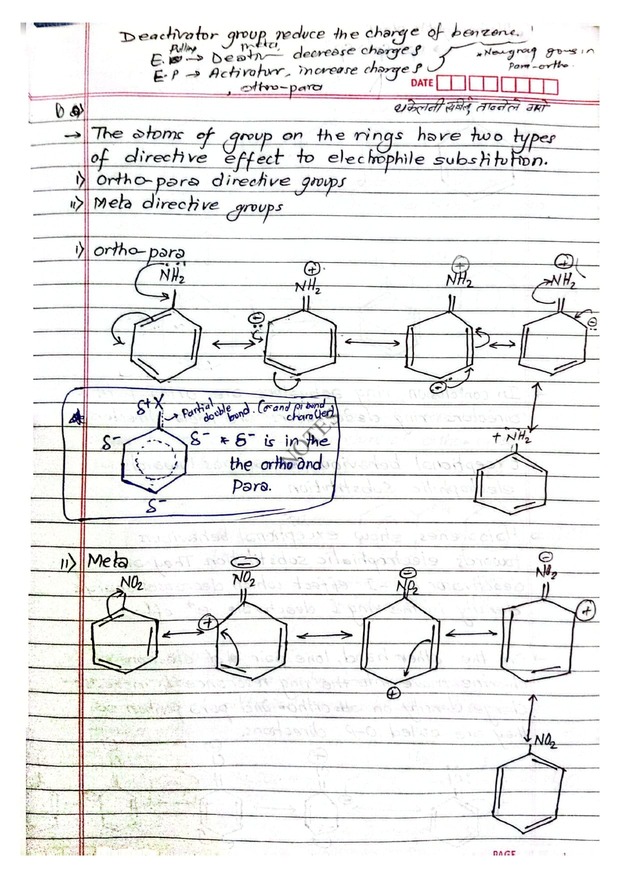 Deactivator group reduce the charge of benzene.
Pulling meta
E. → Deativ decrease charges
E.P → Activator, increase charges
, ortho-para
* Neu grag goas in
Para-ortho
DATE
→ The atoms of group on the rings have two types
of directive effect to elechophile substitution.
i) Ortho-para directive groups
ii) Meta directive groups
i) ortho-para
NH₂
⊕
NH₂
⊖
⊕
NH₂
⊖
⊕
NH₂
⊖
+ NH₂
δ+ X
→ Partial double bond. (σ and pi bond
character)
δ-
δ- * δ- is in the
the ortho and
Para.
δ-
NOTES
ii) Meta
NO₂
⊖
NO₂
⊕
⊖
NO₂
⊕
⊖
NO₂
⊕
NO₂
PAGE